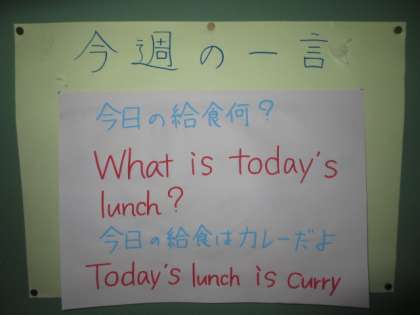 今週の一言
今日の給食何?
What is today's
lunch?
今日の給食はカレーだよ
Today's lunch is curry